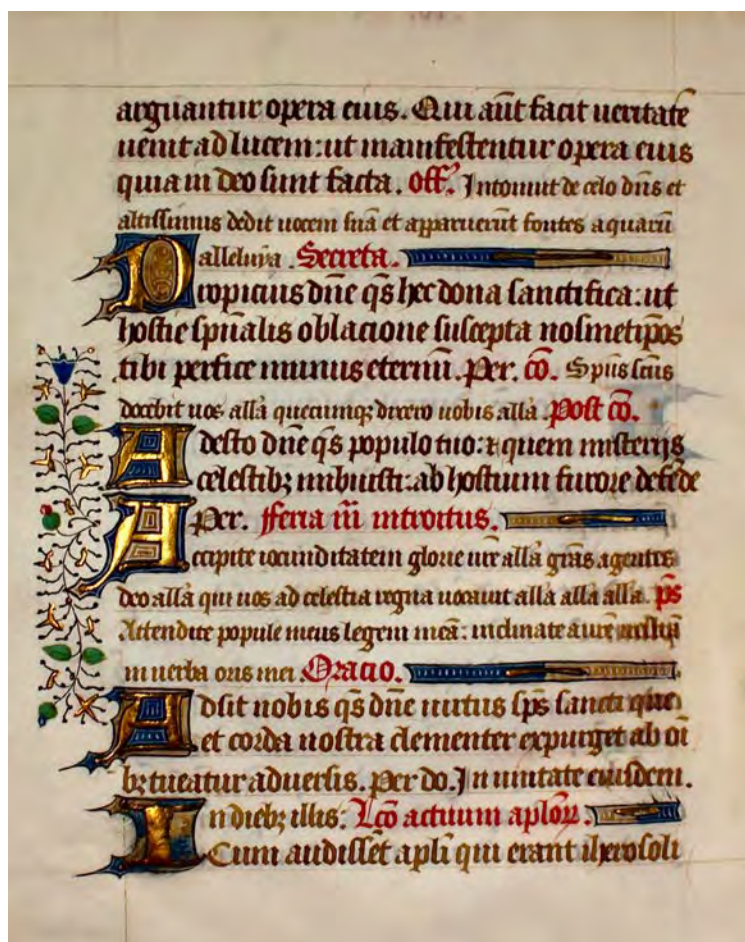 arguantur opera eius. Qui aūt facit ueritatē
uenit ad lucem: ut manifestentur opera eius
quia in deo sunt facta. Off. Intonuit de celo dn̄s et
altissimus dedit uocem suā et apparuerūt fontes aquarū
alleluya. Secreta.
Propicius dn̄e qs̄ hec dona sanctifica: ut
hostie spūalis oblacione suscepta nosmetip̄os
tibi perfice munus eternū. Per. cō. Spūs sc̄us
docebit uos alla quecumqꝫ dixero uobis alla. Post cō.
Adesto dn̄e qs̄ populo tuo: ⁊ quem misterijs
celestibꝫ imbuisti: ab hostium furore defēde
Per. Feria iii introitus.
Accipite iocunditatem glorie ur̄e alla gr̄as agentes
deo alla qui uos ad celestia regna uocauit alla alla alla. p̄s
Attendite popule meus legem meā: inclinate aurē
in uerba oris mei Oracio.
Adsit nobis qs̄ dn̄e uirtus sp̄s sancti que
et corda nostra clementer expurget ab oī
bꝫ tueatur aduersis. Per do. In unitate eiusdem.
In diebꝫ illis: Lc̄o actuum aplōꝝ.
Cum audissēt apl̄i qui erant iherosoli